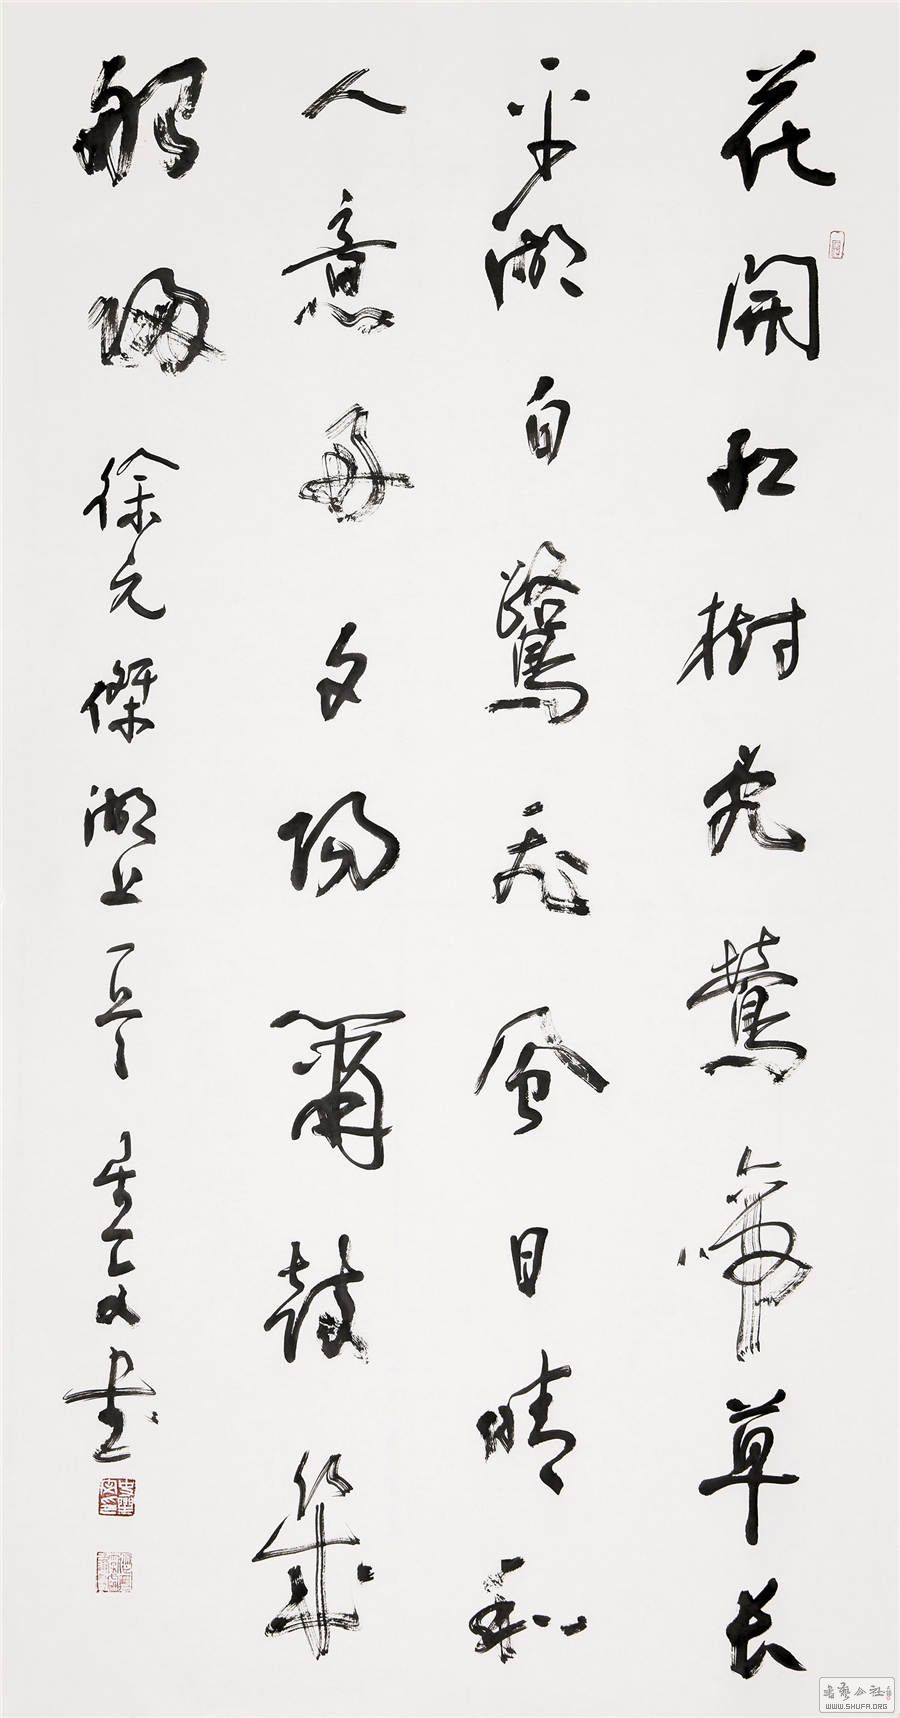 花開紅樹亂鶯啼草長
平湖白鷺飛風日晴和
人意好夕陽簫鼓幾
船歸 徐元傑湖上 書
書藝公社
WWW.SHUFA.ORG